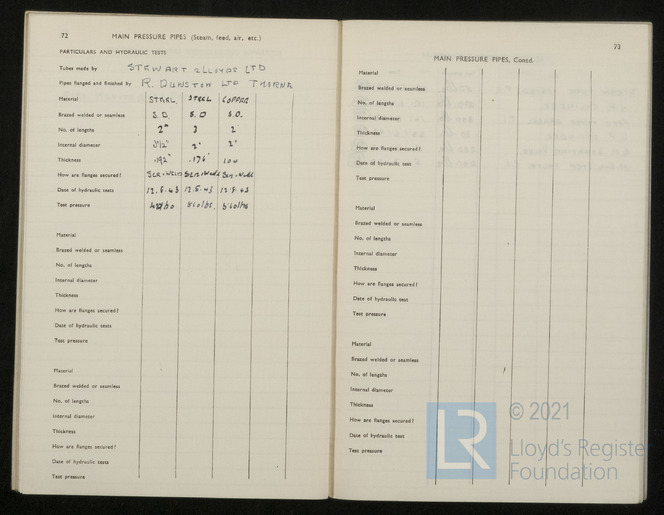 72 MAIN PRESSURE PIPES (Steam, feed, air, etc.)
PARTICULARS AND HYDRAULIC TESTS
Tubes made by STEWART & LLOYDS LTD
Pipes flanged and finished by R. DUNSTON LTD THORNE
Material STEEL STEEL COPPER
Brazed welded or seamless S.D. S.D S.D.
No. of lengths 3 2
Internal diameter 2" 2"
Thickness .192" .176"
How are flanges secured? SCR. WELD SCR. Weld SCR. Weld
Date of hydraulic tests 12.5.43 12.5.43
Test pressure
Material
Brazed welded or seamless
No. of lengths
Internal diameter
Thickness
How are flanges secured?
Date of hydraulic tests
Test pressure
Material
Brazed welded or seamless
No. of lengths
Internal diameter
Thickness
How are flanges secured?
Date of hydraulic tests
Test pressure
73
MAIN PRESSURE PIPES, Contd.
Material
Brazed welded or seamless
No. of lengths
Internal diameter
Thickness
How are flanges secured?
Date of hydraulic test
Test pressure
Material
Brazed welded or seamless
No. of lengths
Internal diameter
Thickness
How are flanges secured?
Date of hydraulic test
Test pressure
Material
Brazed welded or seamless
No. of lengths
Internal diameter
Thickness
How are flanges secured?
Date of hydraulic test
Test pressure
LR
© 2021
Lloyd's Register
Foundation